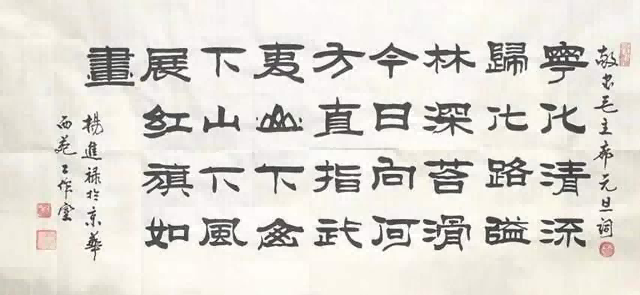 敬书毛主席元旦词
寧化清流
歸化路隘
林深苔滑
今日向何
方直指武
夷山下山
下山下風
展紅旗如
畫
楊進禄於京華
西苑工作室